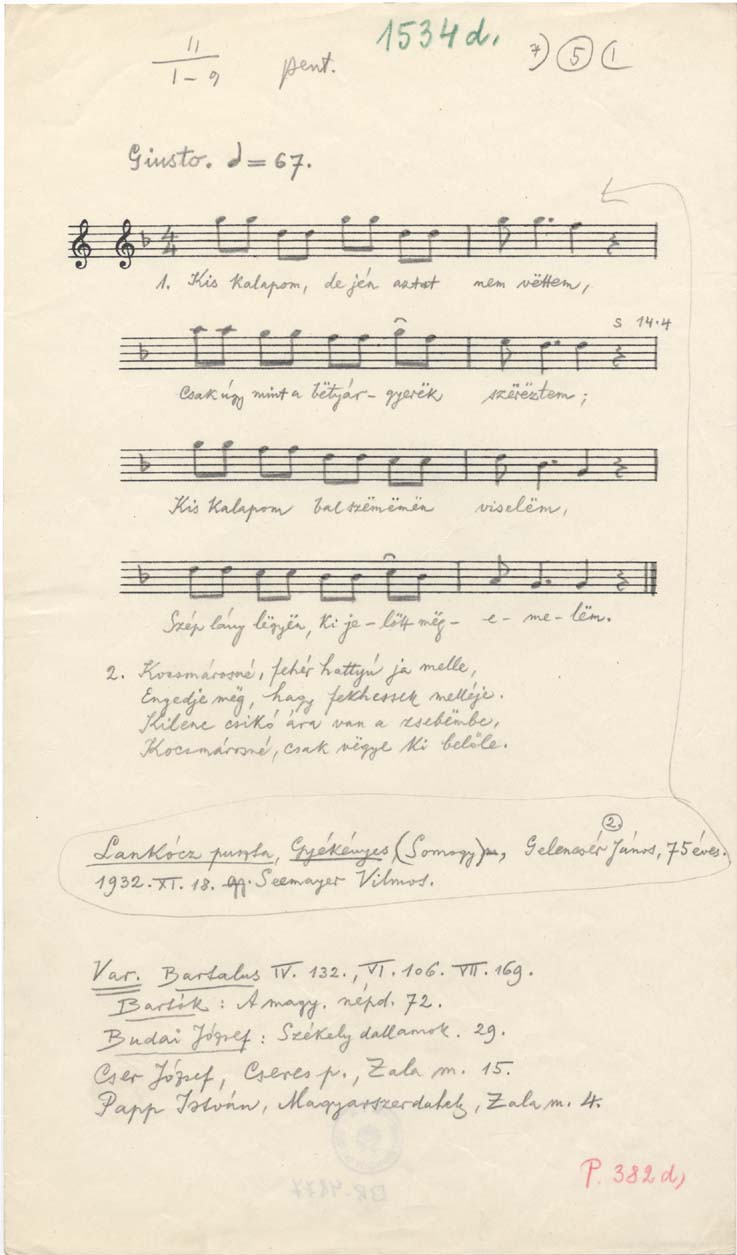 1534 d.
II
1–9
pent.
7) (5) (1
Giusto. = 67.
4
4
1. Kis kalapom, de jén aztat nem vëttem,
s 14.4
Csak úgy mint a bëtyár-gyerëk szërëztem;
Kis kalapom bal szëmëmën viselëm,
Szép lány lëgyën, ki je-lőtt mëg-e-me-lëm.
2. Kocsmárosné, fehér hattyú ja melle,
Engedje mëg, hagy fekhessek melléje.
Kilenc csikó ára van a zsebëmbe,
Kocsmárosné, csak vëgye ki belőle.
2.
Lankócz puszta, Gyékényes, (Somogy), Gelencsér János, 75 éves.
1932. XI. 18. Seemayer Vilmos.
Var. Bartalus IV. 132., VI. 106. VII. 169.
Bartók: A magy. népd. 72.
Budai József: Székely dallamok. 29.
Cser József, Cseres p., Zala m. 15.
Papp István, Magyarszerdahely, Zala m. 4.
P. 382 d,